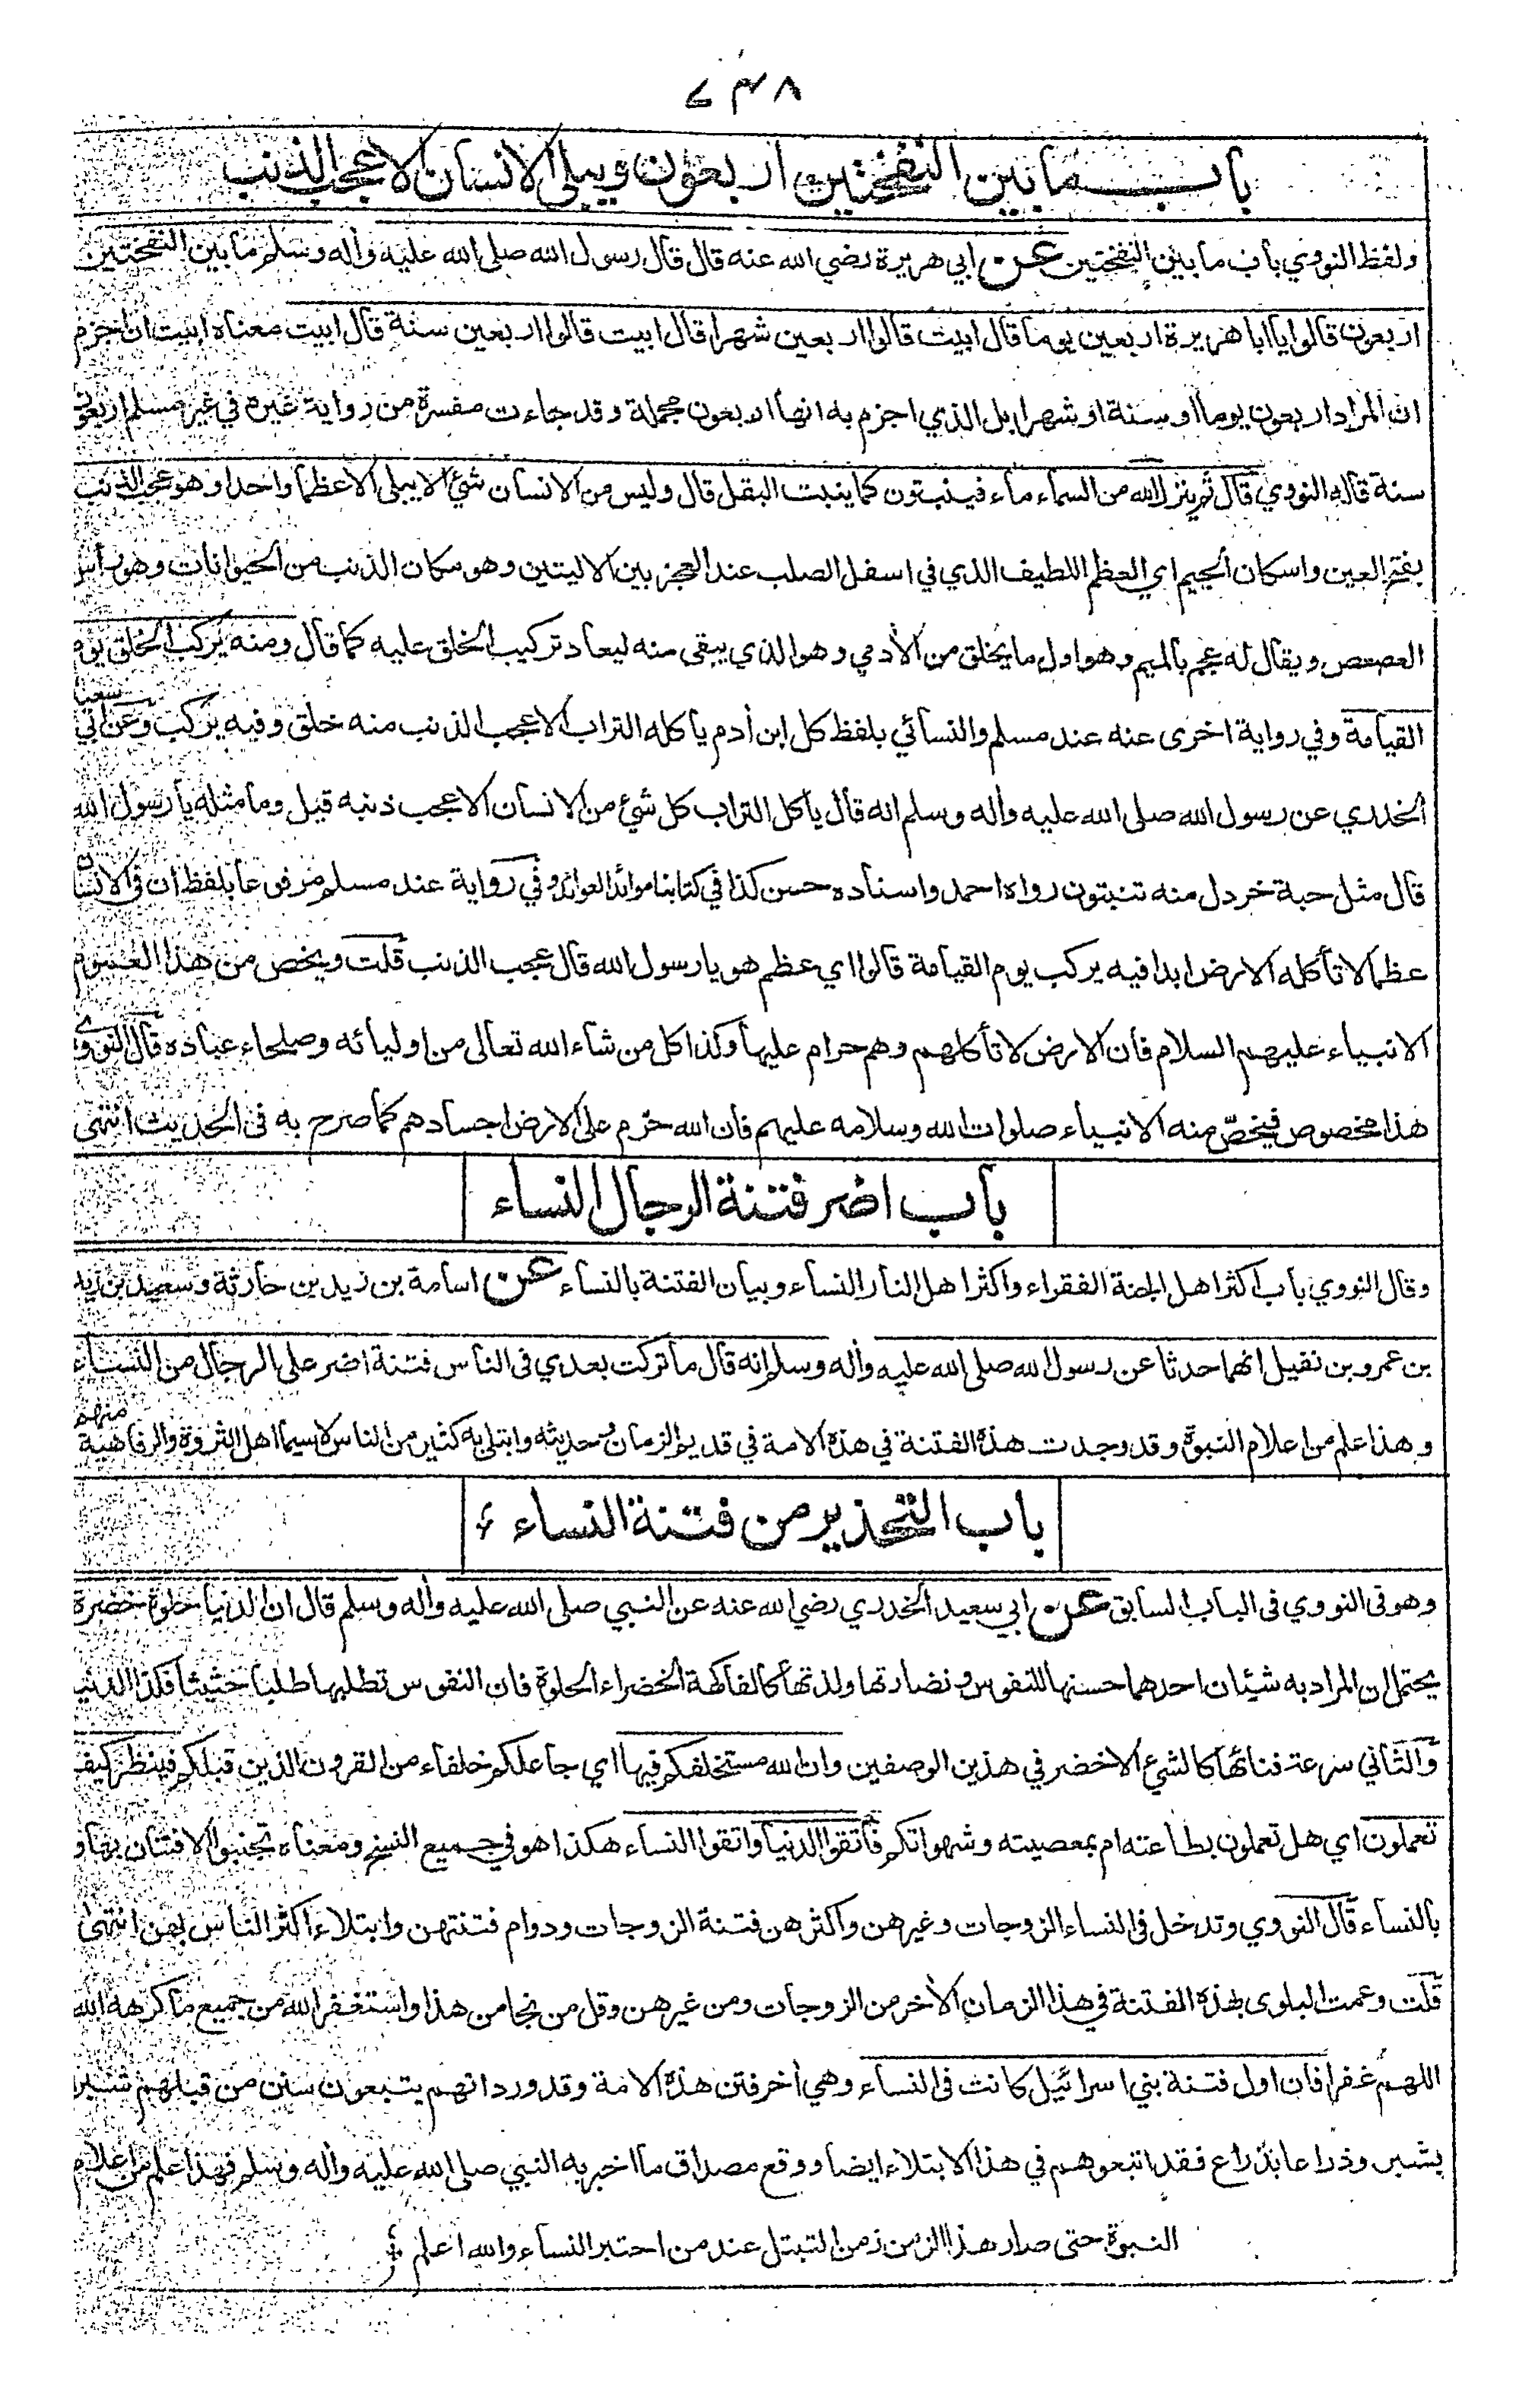 باب ما بين النفختين اربعون ويبلى الانسان الا عجب الذنب
ولفظ النووي باب ما بين النفختين عن ابي هريرة رضي الله عنه قال قال رسول الله صلى الله عليه وأله وسلم ما بين النفختين
اربعون قالوا يا ابا هريرة اربعين يوما قال ابيت قالوا اربعين شهرا قال ابيت قالوا اربعين سنة قال ابيت معناه ابيت ان اجزم
ان المراد اربعون يوما او سنة او شهرا بل الذي اجزم به انها اربعون مجملة وقد جاءت مفسرة من رواية غيره في غير مسلم اربعون
سنة قاله النووي قال ثم ينزل الله من السماء ماء فينبتون كما ينبت البقل قال وليس من الانسان شئ الا يبلى الا عظما واحدا وهو عجب الذنب
بفتح العين واسكان الجيم اي العظم اللطيف الذي في اسفل الصلب عند العجز بين الاليتين وهو مكان الذنب من الحيوانات وهو رأس
العصعص ويقال له عجم بالميم وهو اول ما يخلق من الأدمي وهو الذي يبقى منه ليعاد تركيب الخلق عليه كما قال ومنه يركب الخلق يوم
القيامة وفي رواية اخرى عنه عند مسلم والنسائي بلفظ كل ابن أدم يأكله التراب الا عجب الذنب منه خلق وفيه يركب وعن ابي سعيد
الخدري عن رسول الله صلى الله عليه وأله وسلم انه قال يأكل التراب كل شئ من الانسان الا عجب ذنبه قيل وما مثله يا رسول الله
قال مثل حبة خردل منه تنبتون رواه احمد واسناده حسن كذا في كتابنا موائد العوائد وفي رواية عند مسلم مرفوعا بلفظ ان فى الانسان
عظما لا تأكله الارض ابدا فيه يركب يوم القيامة قالوا اي عظم هو يا رسول الله قال عجب الذنب قلت ويخص من هذا العموم
الانبياء عليهم السلام فان الارض لا تأكلهم وهم حرام عليها وكذا كل من شاء الله تعالى من اوليائه وصلحاء عباده قال النووي
هذا مخصوص فيخص منه الانبياء صلوات الله وسلامه عليهم فان الله حرم على الارض اجسادهم كما صرح به فى الحديث انتهى
باب اضر فتنة الرجال النساء
وقال النووي باب اكثر اهل الجنة الفقراء واكثر اهل النار النساء وبيان الفتنة بالنساء عن اسامة بن زيد بن حارثة وسعيد بن زيد
بن عمرو بن نفيل انهما حدثا عن رسول الله صلى الله عليه وأله وسلم انه قال ما تركت بعدي فى الناس فتنة اضر على الرجال من النساء
وهذا علم من اعلام النبوة وقد وجدت هذه الفتنة في هذه الامة في قديم الزمان وحديثه وابتلي به كثير من الناس لا سيما اهل الثروة والرفاهية منهم
باب التحذير من فتنة النساء
وهو فى النووي فى الباب السابق عن ابي سعيد الخدري رضي الله عنه عن النبي صلى الله عليه وأله وسلم قال ان الدنيا حلوة خضرة
يحتمل ان المراد به شيئان احدهما حسنها للنفوس ونضارتها ولذتها كالفاكهة الخضراء الحلوة فان النفوس تطلبها طلبا حثيثا فكذا الدنيا
والثاني سرعة فنائها كالشئ الاخضر في هذين الوصفين وان الله مستخلفكم فيها اي جاعلكم خلفاء من القرون الذين قبلكم فينظر كيف
تعملون اي هل تعملون بطاعته ام بمعصيته وشهواتكم فاتقوا الدنيا واتقوا النساء هكذا هو في جميع النسخ ومعناه تجنبوا الافتتان بها و
بالنساء قال النووي وتدخل فى النساء الزوجات وغيرهن واكثرهن فتنة الزوجات ودوام فتنتهن وابتلاء اكثر الناس بهن انتهى
قلت وعمت البلوى بهذه الفتنة في هذا الزمان الأخر من الزوجات ومن غيرهن وقل من نجا من هذا واستغفر الله من جميع ما كرهه الله
اللهم غفرا فان اول فتنة بني اسرائيل كانت فى النساء وهي أخر فتن هذه الامة وقد ورد انهم يتبعون سنن من قبلهم شبرا
بشبر وذراعا بذراع فقد اتبعوهم في هذا الابتلاء ايضا ووقع مصداق ما اخبر به النبي صلى الله عليه وأله وسلم فهذا علم من اعلام
النبوة حتى صار هذا الزمن زمن التبتل عند من اختبر النساء والله اعلم